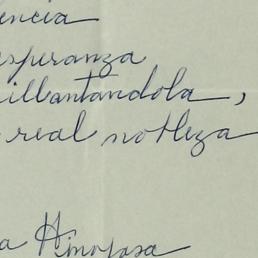 encia
esperanza
illantandola,
real nobleza
a Hinojosa